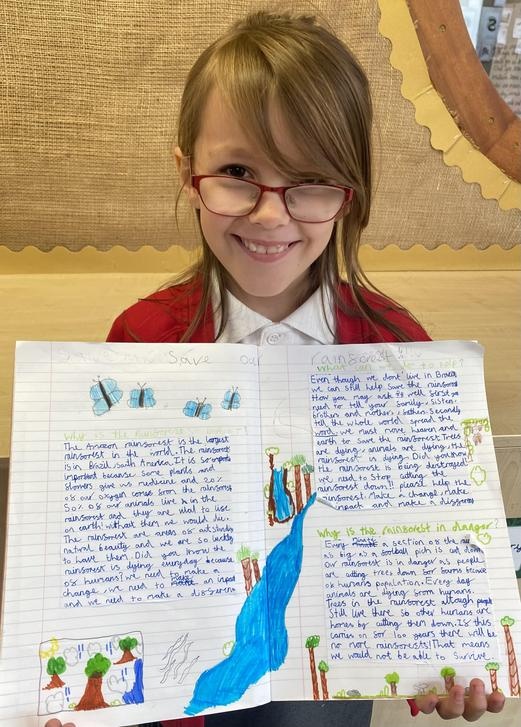 Save our rainforest
Why
The Amazon rainforest is the largest
rainforest in the world. The rainforest
is in Brazil, south America. It is so
important because some plants and
flowers give us medicine and 20%
of our oxygen comes from the rainforest
50% of our animals live in the
rainforest and they are vital to life
on earth! without them we would die.
The rainforests are areas of outstanding
natural beauty and we are so lucky
to have them. Did you know the
rainforest is dying everyday because
of humans? we need to make a
change, we need to make an impact
and we need to make a difference
What can to help?
Even though we don't live in Brazil
we can still help save the rainforest
How you may ask? Well first you
need to tell your family, sister,
brothers and mother, father. Secondly
tell the whole world spread the
word. we must move heaven and
earth to save the rainforest. Trees
are dying, animals are dying, the
rainforest is dying. Did you know
the rainforest is being destroyed
we need to stop cutting the
rainforest down!! please help the
rainforest. Make a change, make
impact and make a difference
Why is the rainforest in danger?
Every minute a section of the
as big as a football pich is cut down
Our rainforest is in danger as people
are cutting trees down for farms because
of humans population. Every day
animals are dying from humans.
Trees in the rainforest although people
Still live there so other humans are
homes by cutting them down. If this
carries on for 100 years there will be
no more rainforests! That means
we would not be able to Survive.